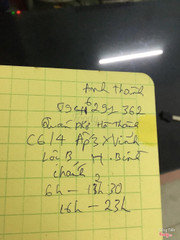 Anh Thanh
291 362
Quán phở Hà Thành
C6/4 Ấp 3 X Vĩnh
Lộc B. H. Bình
chánh
6h – 13h30
16h – 23h